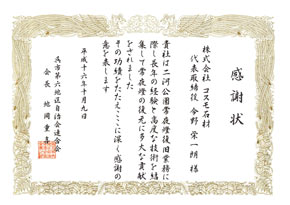 感謝状
株式会社 コスモ石材
代表取締役 今野 栄一朗 様
貴社は二河公園常夜燈復旧業務に
際し長年の経験と高度な技術を結
集して常夜燈の復元に多大な貢献
をされました
その功績をたたえここに深く感謝の
意を表します
平成十六年十月九日
呉市第六地区自治会連合会
会長 地岡